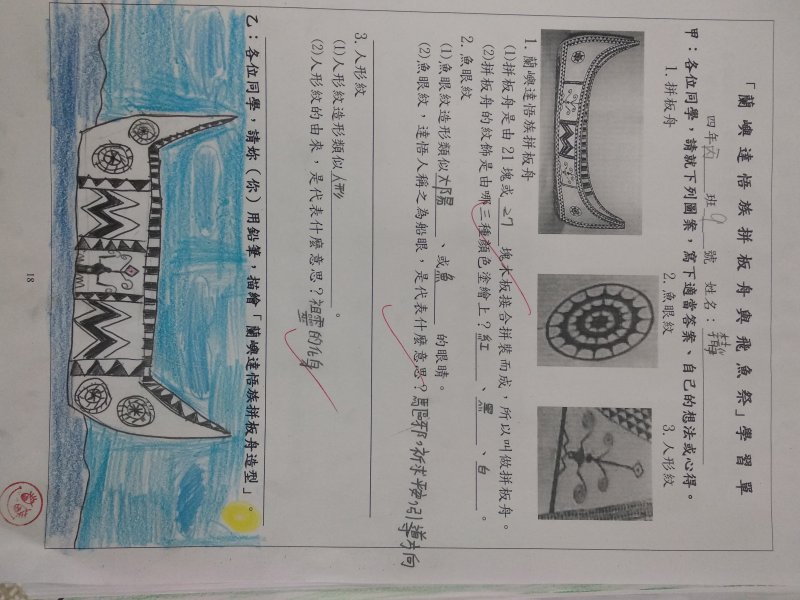 「蘭嶼達悟族拼板舟與飛魚祭」學習單
四年丙班9號 姓名：
甲：各位同學，請就下列圖案，寫下適當答案、自己的想法或心得。
1. 拼板舟 2. 魚眼紋 3. 人形紋
1. 蘭嶼達悟族拼板舟
(1)拼板舟是由 21 塊或 27 塊木板接合拼裝而成，所以叫做拼板舟。
(2)拼板舟的紋飾是由哪三種顏色塗繪上？紅、黑、白。
2. 魚眼紋
(1)魚眼紋造形類似太陽、或魚的眼睛。
(2)魚眼紋，達悟人稱之為船眼，是代表什麼意思？驅邪，祈求平安，引導方向
3. 人形紋
(1)人形紋造形類似人形。
(2)人形紋的由來，是代表什麼意思？祖靈的化身
乙：各位同學，請妳（你）用鉛筆，描繪「蘭嶼達悟族拼板舟造型」。
18